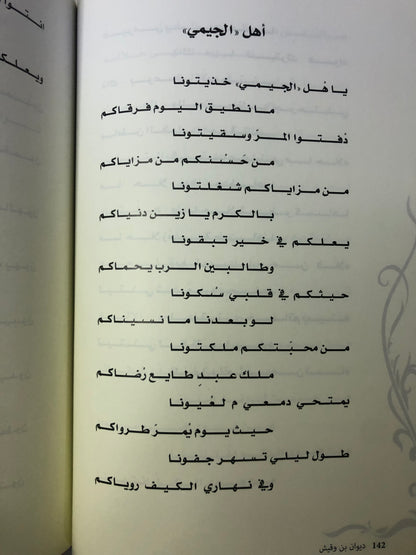 أهل «الجيمي»
يا هْل «الجيمي» خذيتونا
ما نطيق اليوم فرقاكم
ذقتوا المرّ وسقيتونا
من حَسْنكم من مزاياكم
من مزاياكم شغلتونا
بالكرم يا زين دنياكم
يعلكم في خير تبقونا
وطالبين الرب يحماكم
حيثكم في قلبي سكونا
لو بعدنا ما نسيناكم
من محبّتكم ملكتونا
ملك عبدٍ طايع رُضاكم
يمتحي دمعي م لعْيونا
حيث يوم يْمرّ طرواكم
طول ليلي تسهر جفونا
وفي نهاري الكيف روياكم
142 ديوان بن وقيش
انتوا
ويعلكم